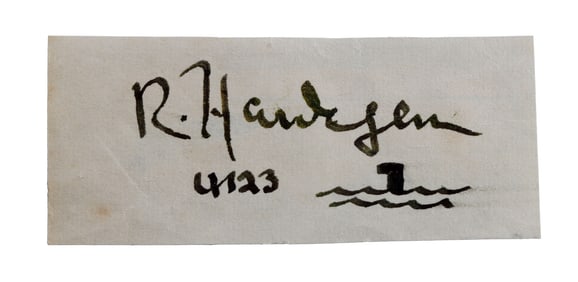 R. Hardegen
U123